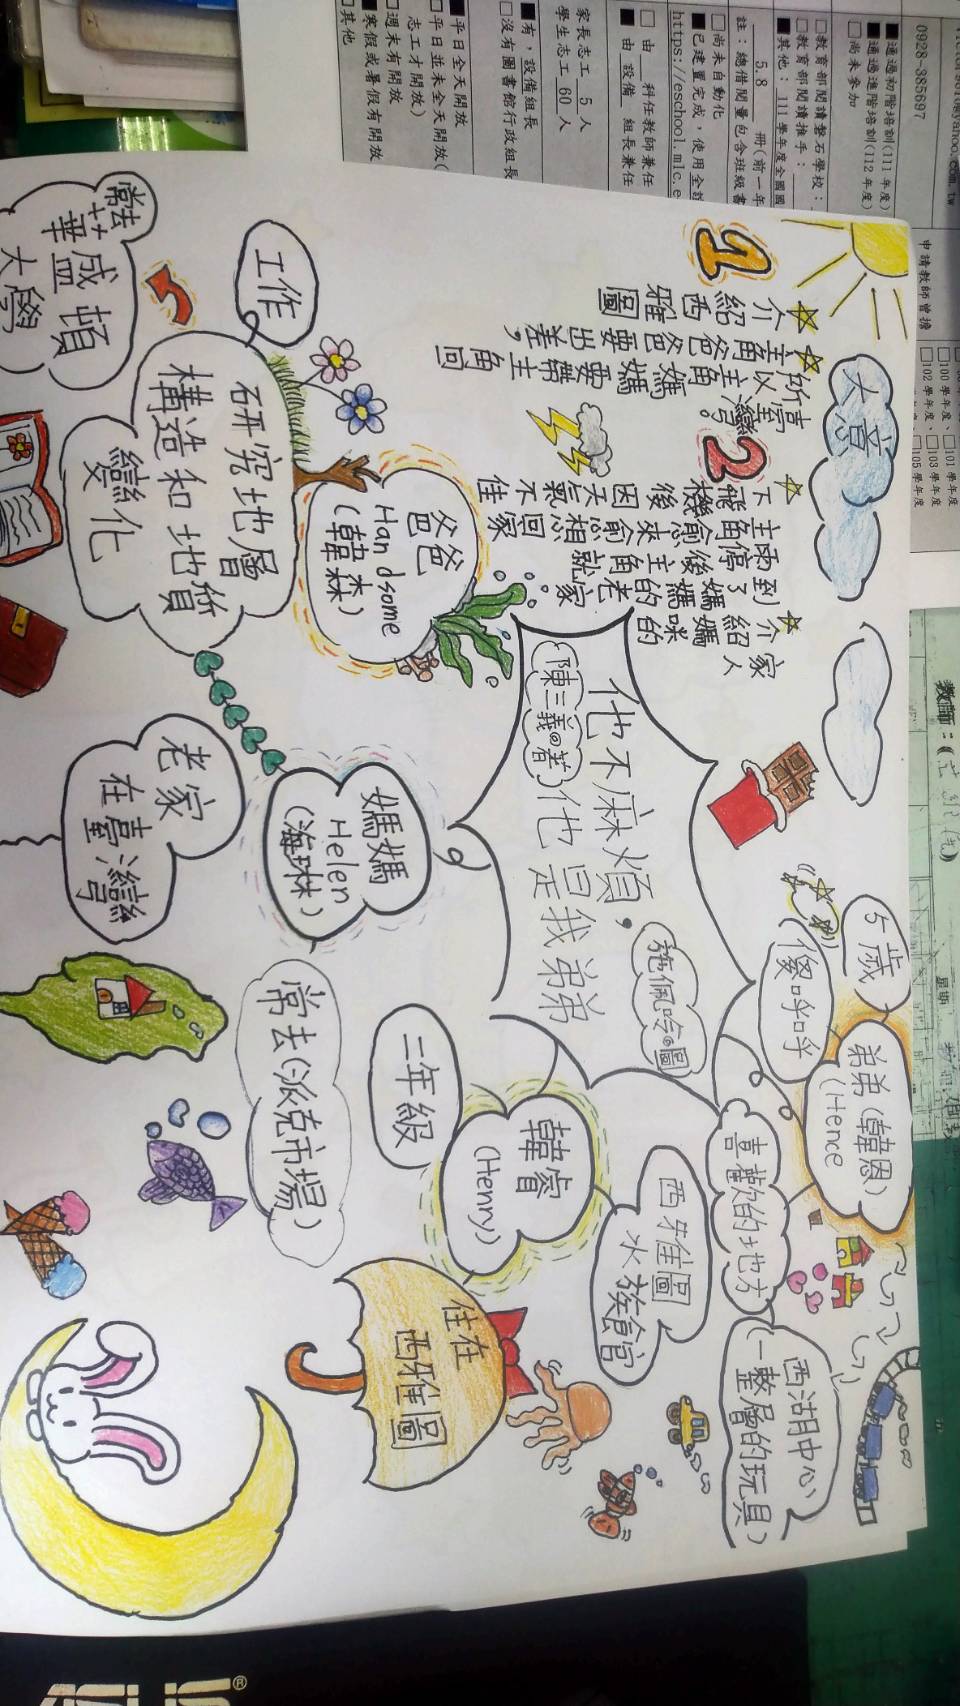 大意
1
☆介紹西雅圖
☆主角爸爸要出差，
所以主角媽媽要帶主角回
去臺灣。
2
☆下飛機後因天氣不佳
雨停了後愈想回家
到主角的老家
☆介紹媽咪的
家人
他不麻煩，他是我弟弟
陳三義の著
施佩吟の圖
爸爸
Handsome
(韓森)
工作
研究地層
構造和地質
變化
常去
華盛頓
大學
媽媽
Helen
(海琳)
老家
在臺灣
常去(派克市場)
韓睿
(Henry)
二年級
西雅圖
水族館
住在
西雅圖
弟弟(韓恩)
(Hence
5歲
傻呼呼
喜歡的地方
西湖中心
(一整層的玩具)
0928-385697
■通過初階培訓(111年度)
■通過進階培訓(112年度)
□尚未參加
□教育部閱讀磐石學校：
□教育部閱讀推手：
■其他：111學年度全國
5.8 冊(前一年
註：總借閱量包含班級書
□尚未自動化
■已建置完成，使用全
https://eschool.mlc.e
□由 科任教師兼任
■由 設備 組長兼任
家長志工 5 人
學生志工 60 人
■有，設備組長
□沒有圖書館行政組長
■平日全天開放
□平日並未全天開放(
志工才開放)
□週末有開放
■寒假或暑假有開放
□其他
申請教師曾擔
□100學年度、□101學年度
□102學年度、□103學年度
□105學年度
教師：
星期